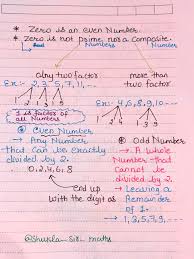 * Zero is an even Number.
* Zero is not prime nor a Composite.
Numbers Numbers
only two factor
more than two factor
Ex:- 2, 3, 5, 7, 11, ...
Ex:- 4, 6, 8, 9, 10 ...
1 is factor of all Numbers
① Even Number
→ Any Number that Can be exactly divided by 2.
0, 2, 4, 6, 8
End up with the digit as
② Odd Number
→ A whole Number that Cannot be divided by 2.
→ Leaving a Remainder of 1.
→ 1, 3, 5, 7, 9, ...
@Shukla_Siri_maths